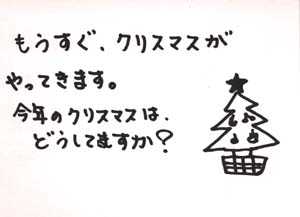 もうすぐ、クリスマスが
やってきます。
今年のクリスマスは、
どうしてますか?